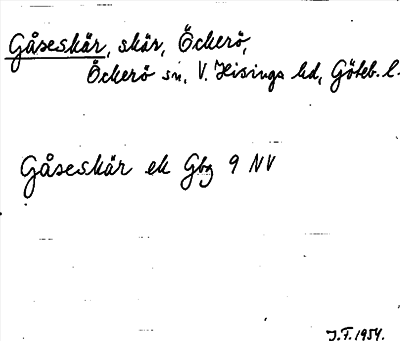 Gåseskär, skär, Öckerö,
Öckerö sn, V. Hisings hd, Göteb. l.
Gåseskär ek Gbg 9 NV
J.F. 1954.